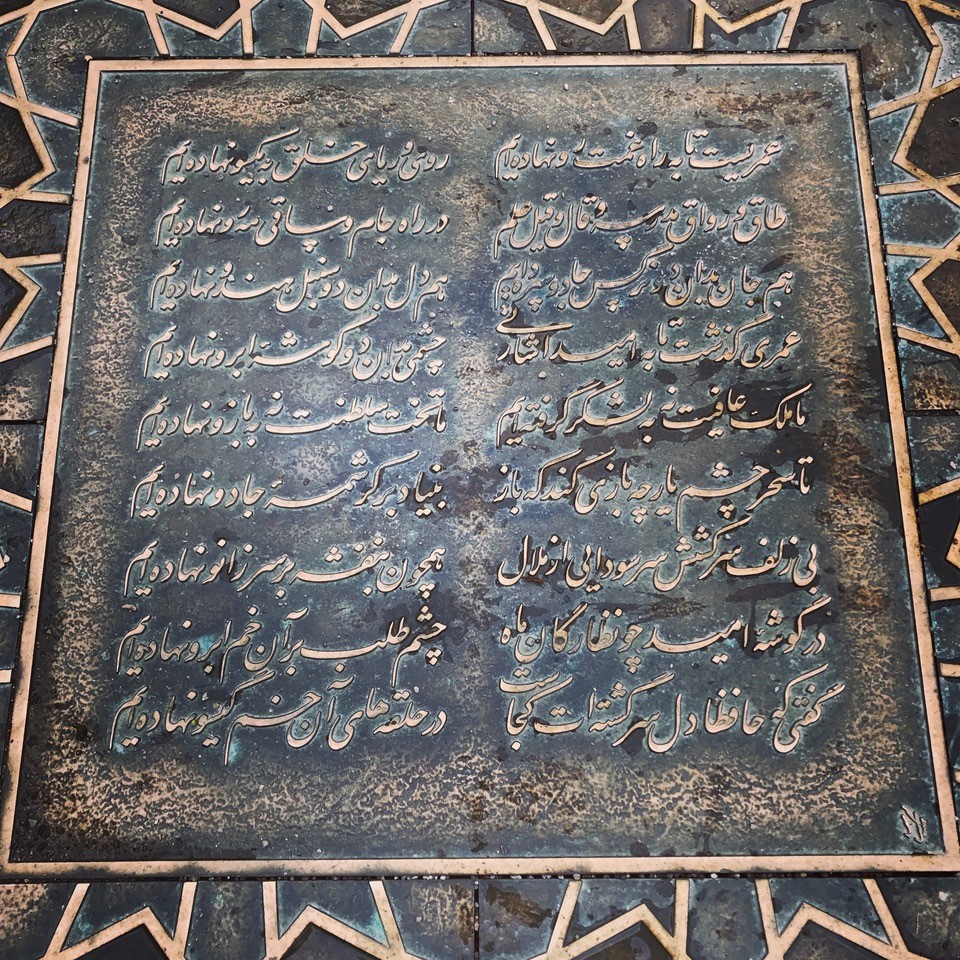 عمریست تا به راه غمت رو نهاده‌ایم روی و ریای خلق به یکسو نهاده‌ایم
طاق و رواق مدرسه و قال و قیل علم در راه جام و ساقی مه‌رو نهاده‌ایم
هم جان بدان دو نرگس جادو سپرده‌ایم هم دل بدان دو سنبل هندو نهاده‌ایم
عمری گذشت تا به امید اشارتی چشمی بدان دو گوشهٔ ابرو نهاده‌ایم
ما ملک عافیت نه به لشگر گرفته‌ایم ما تخت سلطنت نه به بازو نهاده‌ایم
تا سحر چشم یار چه بازی کند که باز بنیاد بر کرشمهٔ جادو نهاده‌ایم
بی زلف سرکشش سر سودایی از ملال همچون بنفشه بر سر زانو نهاده‌ایم
در گوشهٔ امید چو نظارگان ماه چشم طلب بر آن خم ابرو نهاده‌ایم
گفتی که حافظا دل سرگشته‌ات کجاست در حلقه‌های آن خم گیسو نهاده‌ایم